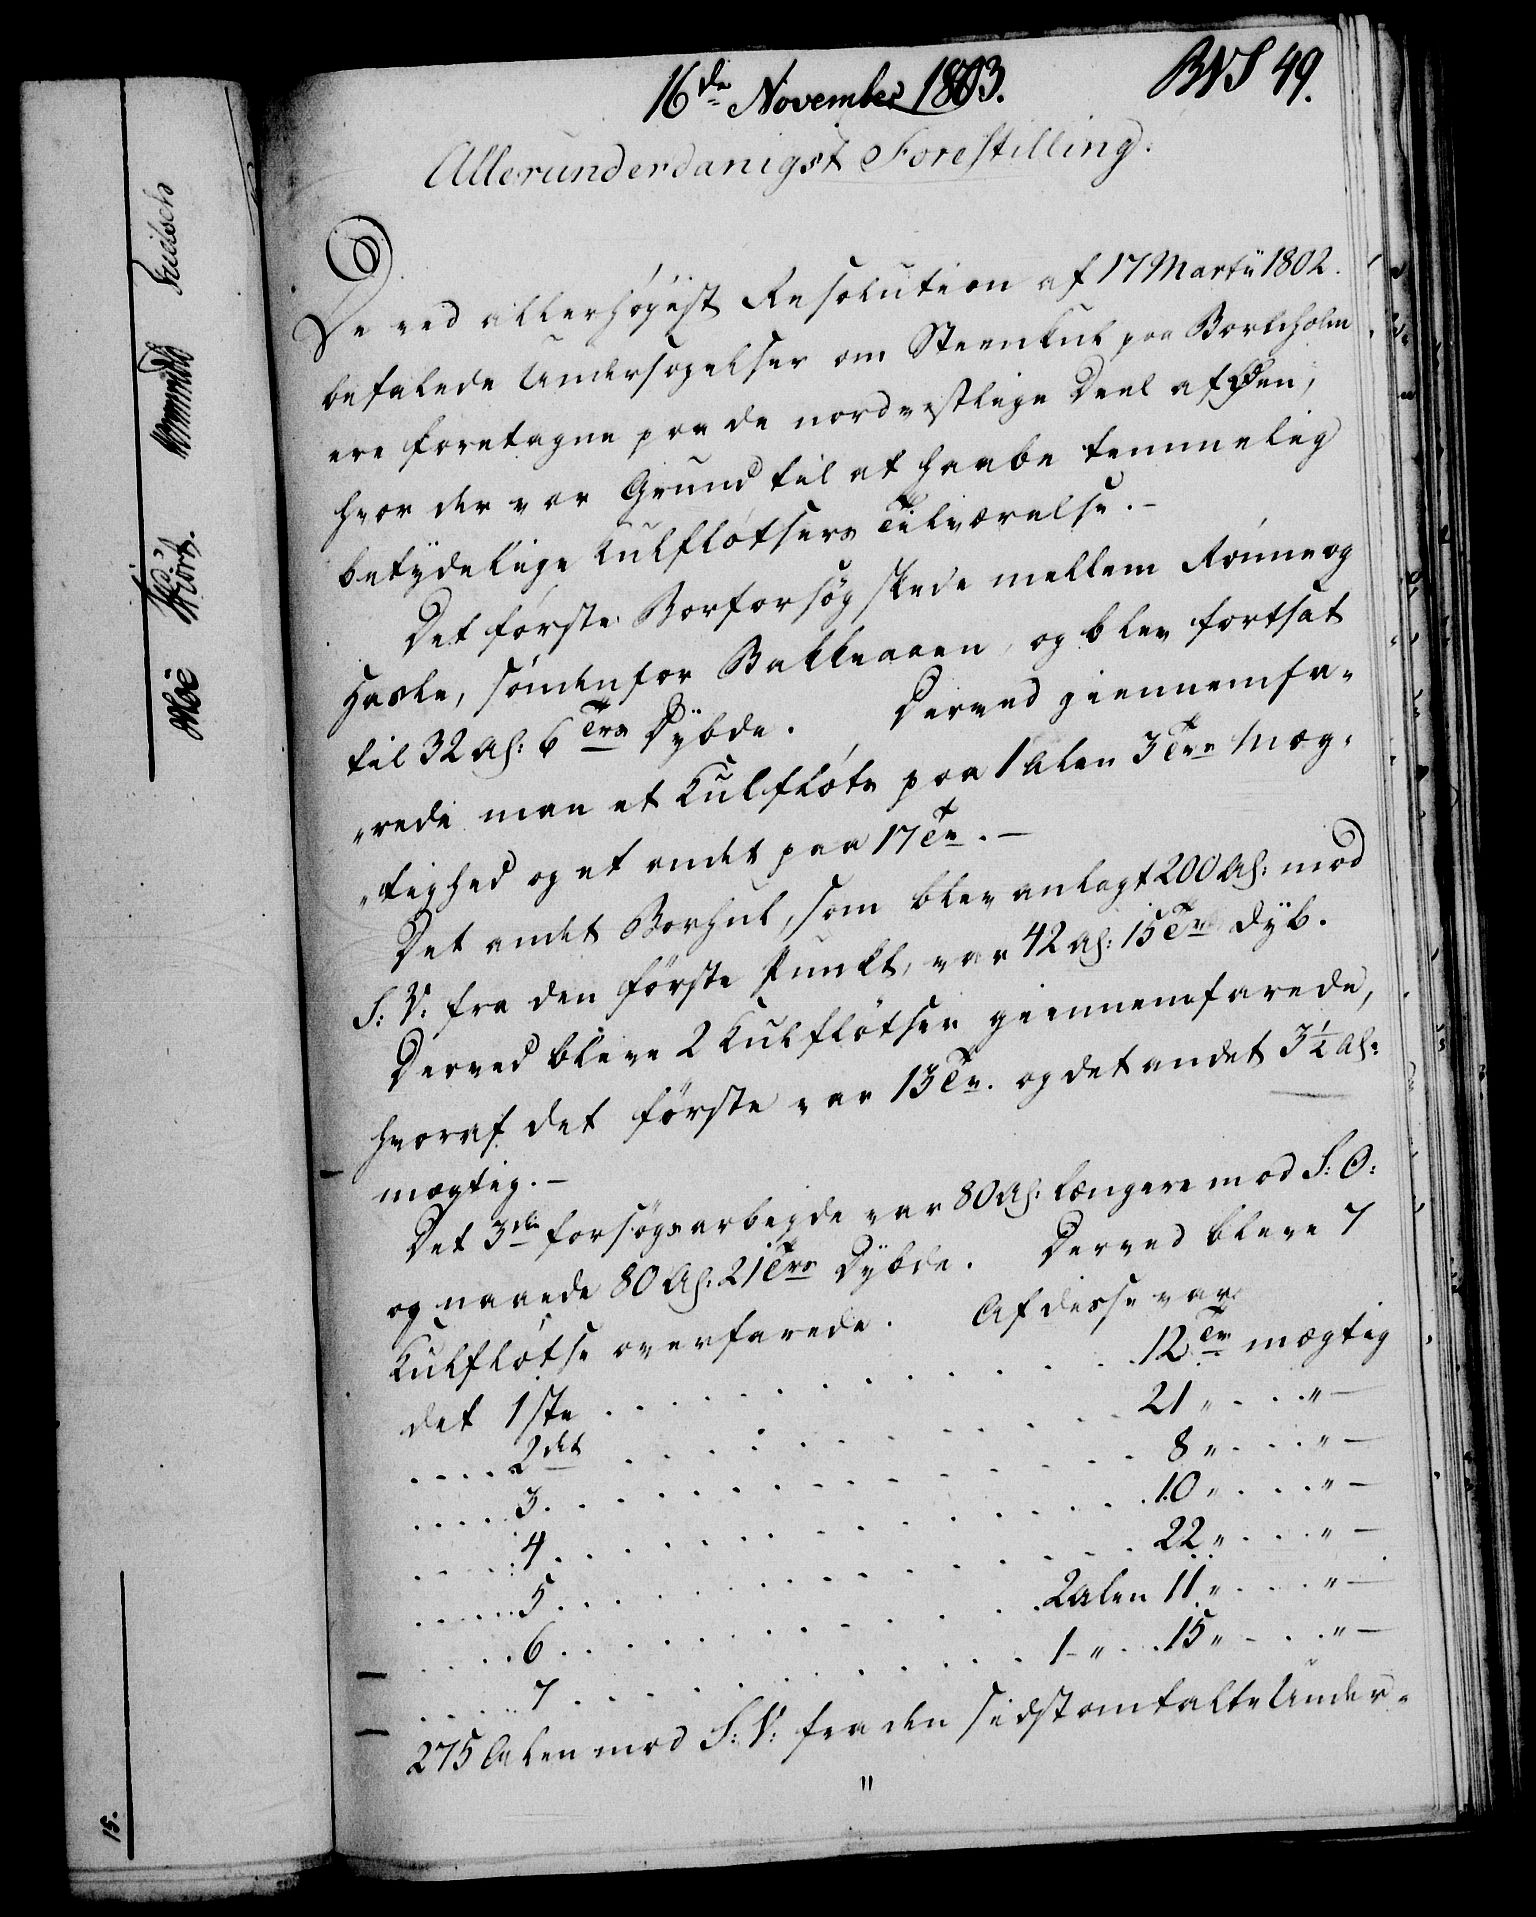 16de November 1803.
BNS 49.
Allerunderdanigst Forestilling.
De ved allerhøyest Resolution af 17 Martii 1802.
befalede Undersøgelser om Steenkul paa Bornholm
ere foretagne paa de nordvestlige Deel af Øen,
hvor der var Grund til at haabe temmelig
betydelige Kulfløtsers Tilværelse.-
Det første Borforsøg skede mellem Rønne og
Hasle, sønden for Bakkeaaen, og blev fortsat
til 32 Al: 6 Trs Dybde. Derved giennemfa-
"rede man et Kulfløts paa 1 Alen 3 Trs Mæg-
"tighed og et andet paa 17 Tr.-
Det andet Borhul, som blev anlagt 200 Al: mod
S: V: fra den første Punkt, var 42 Al: 15 Tr dyb.
Derved bleve 2 Kulfløtser giennemfarede,
hvoraf det første var 13 Tr. og det andet 3¼ Al:
mægtig.-
Det 3die forsøgsarbeyde var 80 Al: længere mod S: O:
og naaede 80 Al: 21 Trs Dybde. Derved bleve 7
Kulfløtse overfarede. Af disse var
det 1ste . . . . . . . . . . 12 Tr mægtig
. . . . 2det . . . . . . . . . . 21 " . . . " -
. . . . 3 . . . . . . . . . . 8 " . . . " -
. . . . 4 . . . . . . . . . . 10 " . . . " -
. . . . 5 . . . . . . . . . . 22 " . . . " -
. . . . 6 . . . . . . . . . . 2 Alen 11 " . . . " -
. . . . 7 . . . . . . . . . . 1 - " . . 15 " - . . " -
275 Alen mod S: V: fra den sidstomtalte Under-
"
Moe
Hiort.
15.